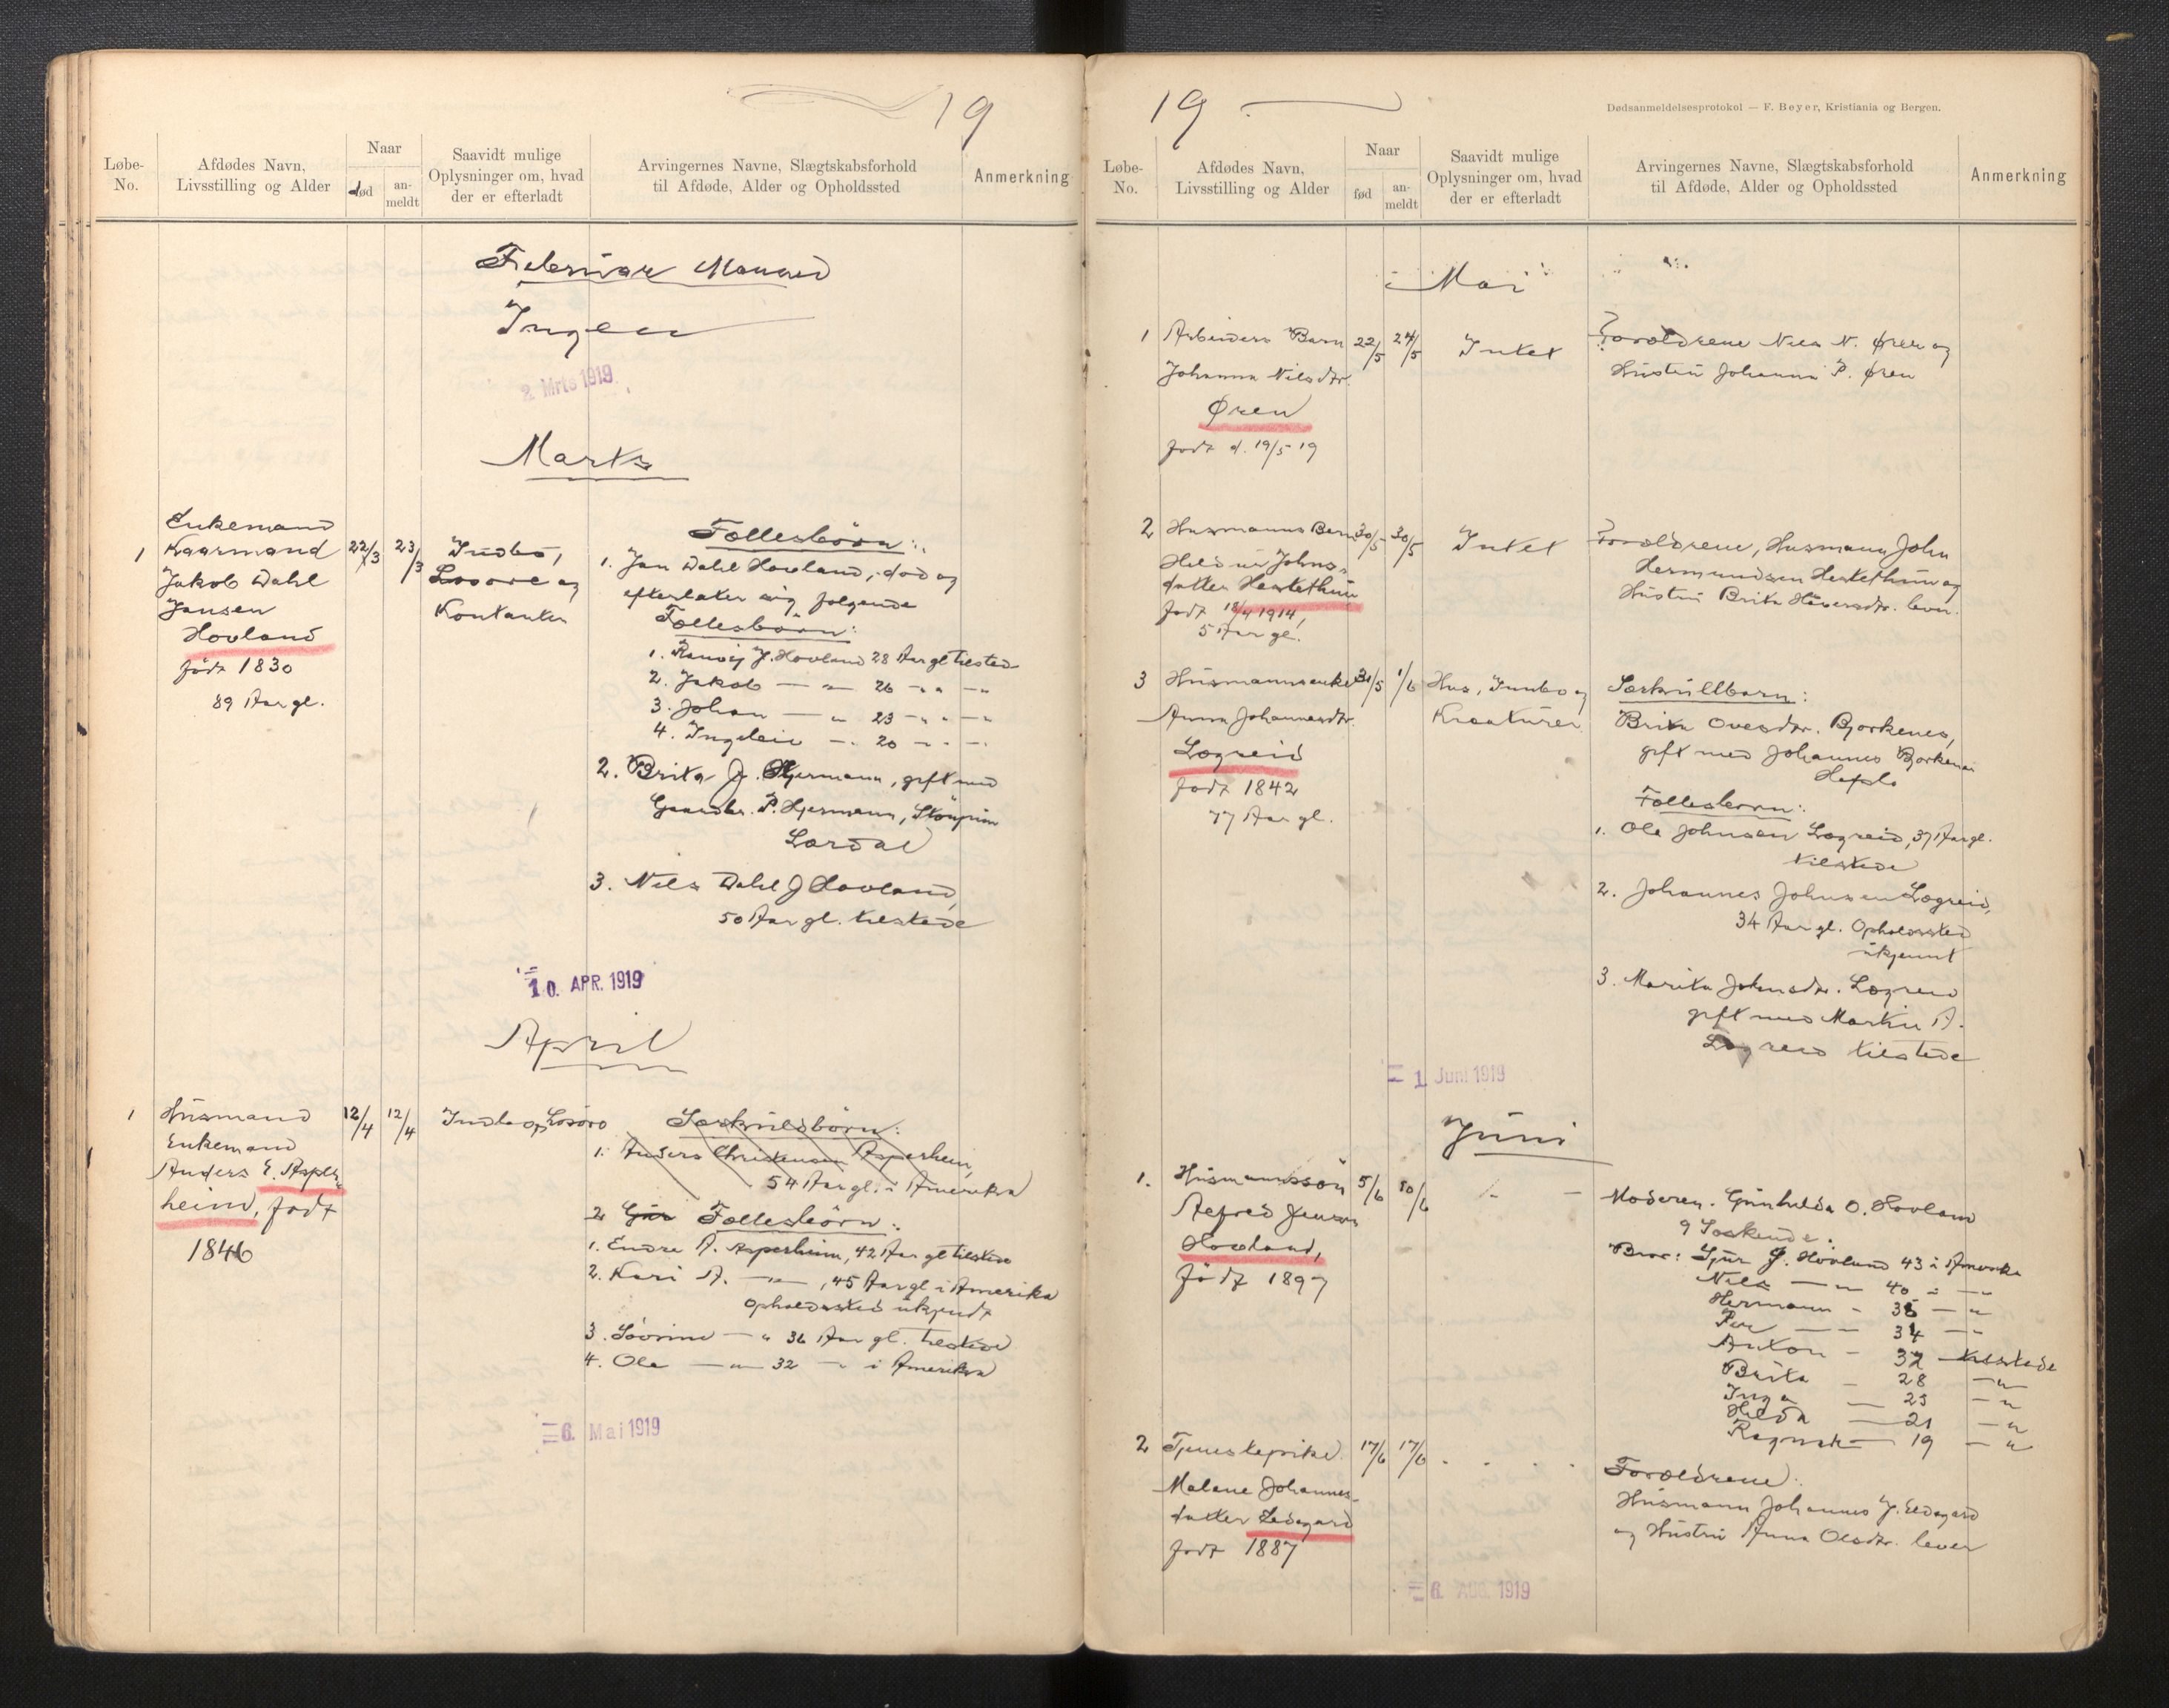 19
Løbe-
No.
Afdødes Navn,
Livsstilling og Alder
Naar
død
an-
meldt
Saavidt mulige
Oplysninger om, hvad
der er efterladt
Arvingernes Navne, Slægtskabsforhold
til Afdøde, Alder og Opholdssted
Anmerkning
Februar Maaned
Ingen
2. Mrts 1919.
Marts
1
Enkemand
Kaarmand
Jakob Dahl
Jansen
Hovland
født 1830
89 Aar gl.
22/3
23/3
Indbo,
Løsøre og
Kontanter
Fællesbørn:
1. Jan Dahl Hovland, død og
efterlater sig følgende
Fællesbørn:
1. Ranvei J. Hovland 28 Aar gl tilsted
2. Jakob — " — 26 — " — "
3. Johan — " 23 — " — "
4. Ingeleiv — " 20 — " — "
2. Brita J. Hjermann, gift med
Gaardbr. P. Hjermann,
Lærdal
3. Nils Dahl J Hovland,
50 Aar gl. tilstede
10. APR. 1919
April
1
Husmand
Enkemand
Anders E. Asper-
heim, født
1846
12/4
12/4
Indbo og Løsøre
Særkuldsbørn:
1. Anders Christensen Asperheim,
54 Aar gl. i Amerika
2 Fællesbørn:
1. Endre A. Asperheim, 42 Aar gl tilstede
2. Kari A. — " — , 45 Aar gl i Amerika
Opholdssted ukjendt
3. Søvrine — " 36 Aar gl. tilstede
4. Ole — " — 32 — " i Amerika
6. Mai 1919
19
Dødsanmeldelsesprotokol — F. Beyer, Kristiania og Bergen.
Løbe-
No.
Afdødes Navn,
Livsstilling og Alder
Naar
fød
an-
meldt
Saavidt mulige
Oplysninger om, hvad
der er efterladt
Arvingernes Navne, Slægtskabsforhold
til Afdøde, Alder og Opholdssted
Anmerkning
Mai
1
Arbeiders Barn
Johanna Nilsdtr.
Øren
født d. 19/5 19
22/5
24/5
Intet
Forældrene Nils N. Øren og
Hustru Johanna P. Øren
2
Husmanns Barn
Johns-
datter Hestethun
født 18/4 1914,
5 Aar gl.
30/5
30/5
Intet
Forældrene, Husmann John
Hermundsen Hestethun og
Hustru Brita Haversdtr. lever.
3
Husmannsenke
Anna Johannesdtr.
Lægreid
født 1842
77 Aar gl.
31/5
1/6
Hus, Innbo og
Kreaturer
Særkullbarn:
Brita Ovesdtr. Bjorkenes,
gift med Johannes Bjorkenes
Hafslo
Fællesbørn:
1. Ole Johnsen Lægreid, 37 Aar gl.
tilstede
2. Johannes Johnsen Lægreid,
34 Aar gl. Opholdssted
ukjennt
3. Marita Johnsdtr. Lægreid
gift med Martin A.
Lægreid tilstede
1 Juni 1919
Juni
1.
Husmannssøn
Alfred Jensen
Hovland,
født 1897
5/6
10/6
Moderen. Gunhilda O. Hovland
9 Søskende:
Bror: Sjur J. Hovland 43 i Amerika
Nils — " 40 " — "
Hermann — 36 — "
Per — 34 — "
Anton — 32 tilstede
Brita — 28 — "
Inga — 23 — "
Hilda — 21 — "
Ragna — 19 — "
2
Tjenestepike
Malene Johannes-
datter Eldegard
født 1887
17/6
17/6
Forældrene:
Husmann Johannes J. Eldegard
og Hustru Anna Olsdtr. lever
6. AUG. 1919